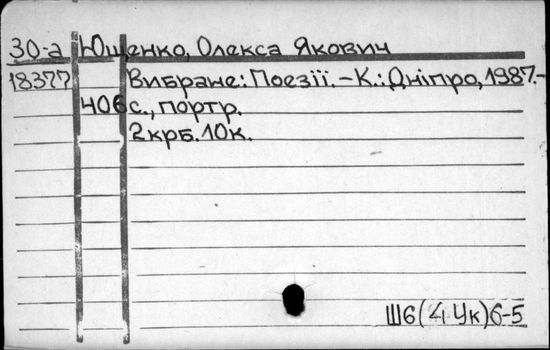 30-а Ющенко, Олекса Якович
18377 Вибране: Поезії. – К.: Дніпро, 1987. –
406 с., портр.
2 крб. 10 к.
Ш6(4Ук)6-5